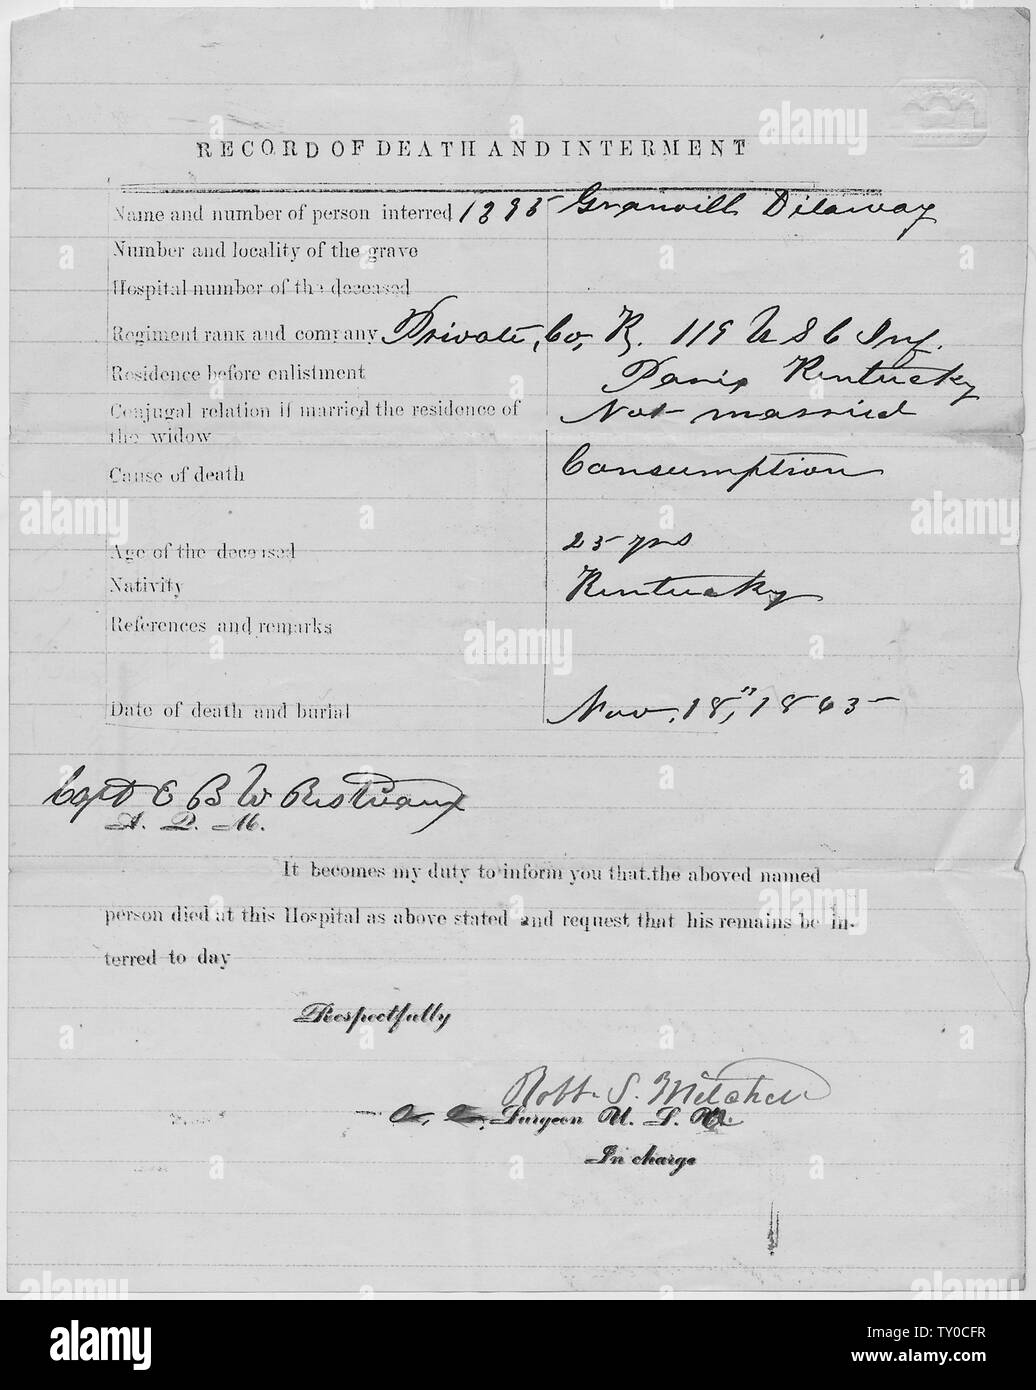 RECORD OF DEATH AND INTERMENT
Name and number of person interred 1395 Granvill Dilaway
Number and locality of the grave
Hospital number of the deceased
Regiment rank and company Private, Co, K. 119 U S C Inf.
Residence before enlistment Paris Kentucky
Conjugal relation if married the residence of Not married
the widow
Cause of death Consumption
Age of the deceased 25 yrs
Nativity Kentucky
References and remarks
Date of death and burial Nov. 18," 1865
Capt E B W
A. Q. M.
It becomes my duty to inform you that.the aboved named
person died at this Hospital as above stated and request that his remains be in-
terred to day
Respectfully
Robt. S. Mitchell
Surgeon U. S.
In charge
alamy
Image ID: TY0CFR
www.alamy.com